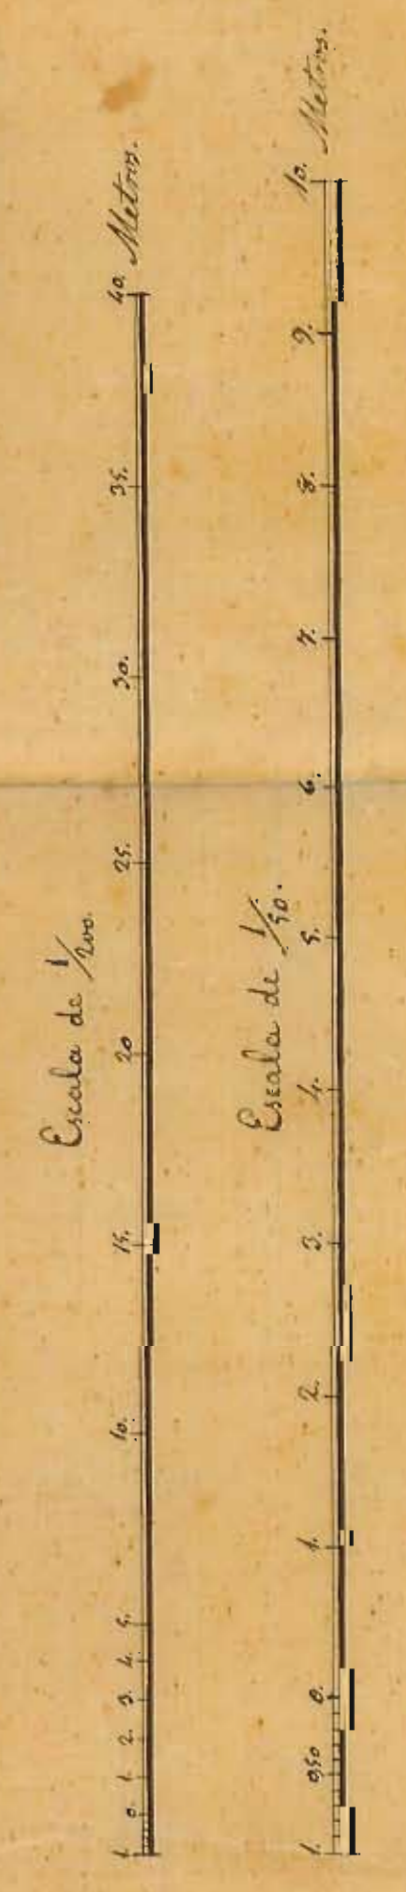 Escala de 1/200.
1. 0. 1. 2. 3. 4. 5. 10. 15. 20 25. 30. 35. 40. Metros.
Escala de 1/50.
1. 0,50 0. 1. 2. 3. 4. 5. 6. 7. 8. 9. 10. Metros.